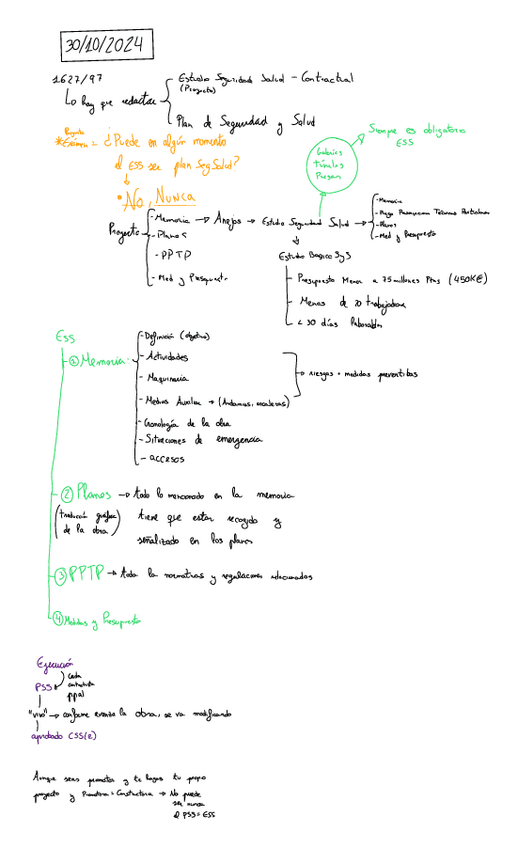 30/10/2024
1627/97
Lo hay que redactar
Estudio Seguridad Salud - Contractual
(Proyecto)
Plan de Seguridad y Salud
Pregunta
*Examen = ¿Puede en algún momento
el ESS ser plan Seg Salud?
• No, NUNCA
Galerías
túneles
Presas
Siempre es obligatorio
ESS
Proyecto
- Memoria → Anejos → Estudio Seguridad Salud →
- Planos
- PPTP
- Med y Presupuesto
- Memoria
- Pliego Prescripciones Técnicas Particulares
- Planos
- Med y Presupuesto
Estudio Básico SyS
- Presupuesto Menor a 75 millones Ptas (450K€)
- Menos de 20 trabajadores
- < 30 días laborales
ESS
① Memoria
- Definición (objetivo)
- Actividades
- Maquinaria
- Medios Auxiliar → (Andamios, escaleras)
→ riesgos + medidas preventivas
- Cronología de la obra
- Situaciones de emergencia
- accesos
② Planos → todo lo mencionado en la memoria
(traducción gráfica
de la obra)
tiene que estar recogido y
señalizado en los planos
③ PPTP → toda la normativas y regulaciones relacionados
④ Medidas y Presupuesto
Ejecución
PSS
cada
contratista
ppal
"vivo" → conforme avanza la obra, se va modificando
aprobado CSS(e)
Aunque seas promotor y te hagas tu propio
proyecto y Promotora = Constructora → No puede
ser nunca
el PSS = ESS